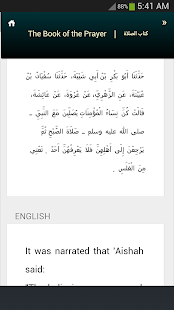 5:41 AM
The Book of the Prayer | كتاب الصلاة »
حَدَّثَنَا أَبُو بَكْرِ بْنُ أَبِي شَيْبَةَ، حَدَّثَنَا سُفْيَانُ بْنُ
عُيَيْنَةَ، عَنِ الزُّهْرِيِّ، عَنْ عُرْوَةَ، عَنْ عَائِشَةَ،
قَالَتْ كُنَّ نِسَاءُ الْمُؤْمِنَاتِ يُصَلِّينَ مَعَ النَّبِيِّ ـ
صلى الله عليه وسلم ـ صَلاَةَ الصُّبْحِ ثُمَّ
يَرْجِعْنَ إِلَى أَهْلِهِنَّ فَلاَ يَعْرِفُهُنَّ أَحَدٌ . تَعْنِي
مِنَ الْغَلَسِ .
ENGLISH
It was narrated that 'Aishah
said: